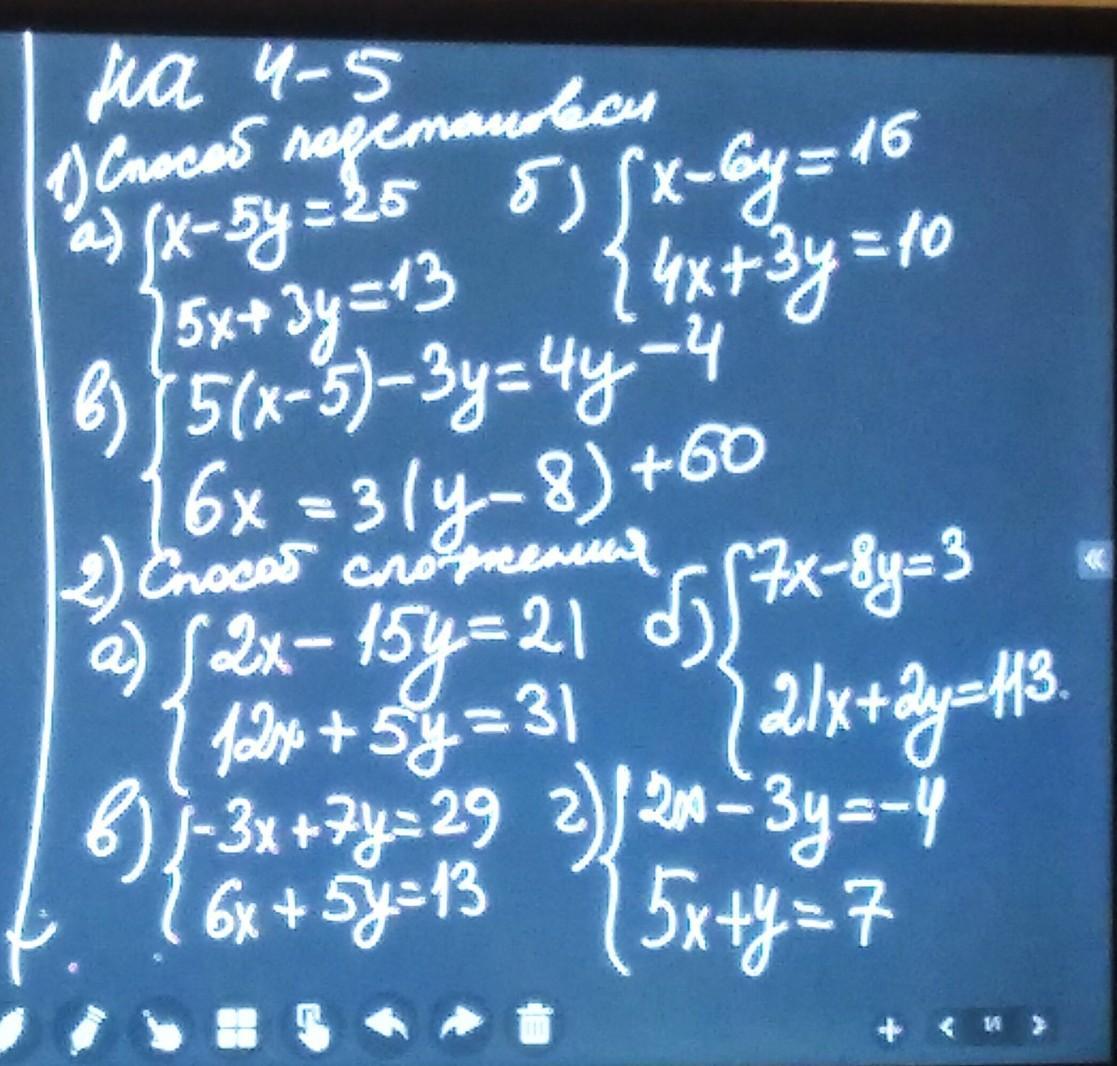 на 4-5
1) Способ подстановки
а) { x-5y=25
5x+3y=13
б) { x-6y=16
4x+3y=10
в) { 5(x-5)-3y=4y-4
6x=3(y-8)+60
2) Способ сложения
а) { 2x-15y=21
12x+5y=31
б) { 7x-8y=3
21x+2y=113.
в) { -3x+7y=29
6x+5y=13
г) { 2x-3y=-4
5x+y=7